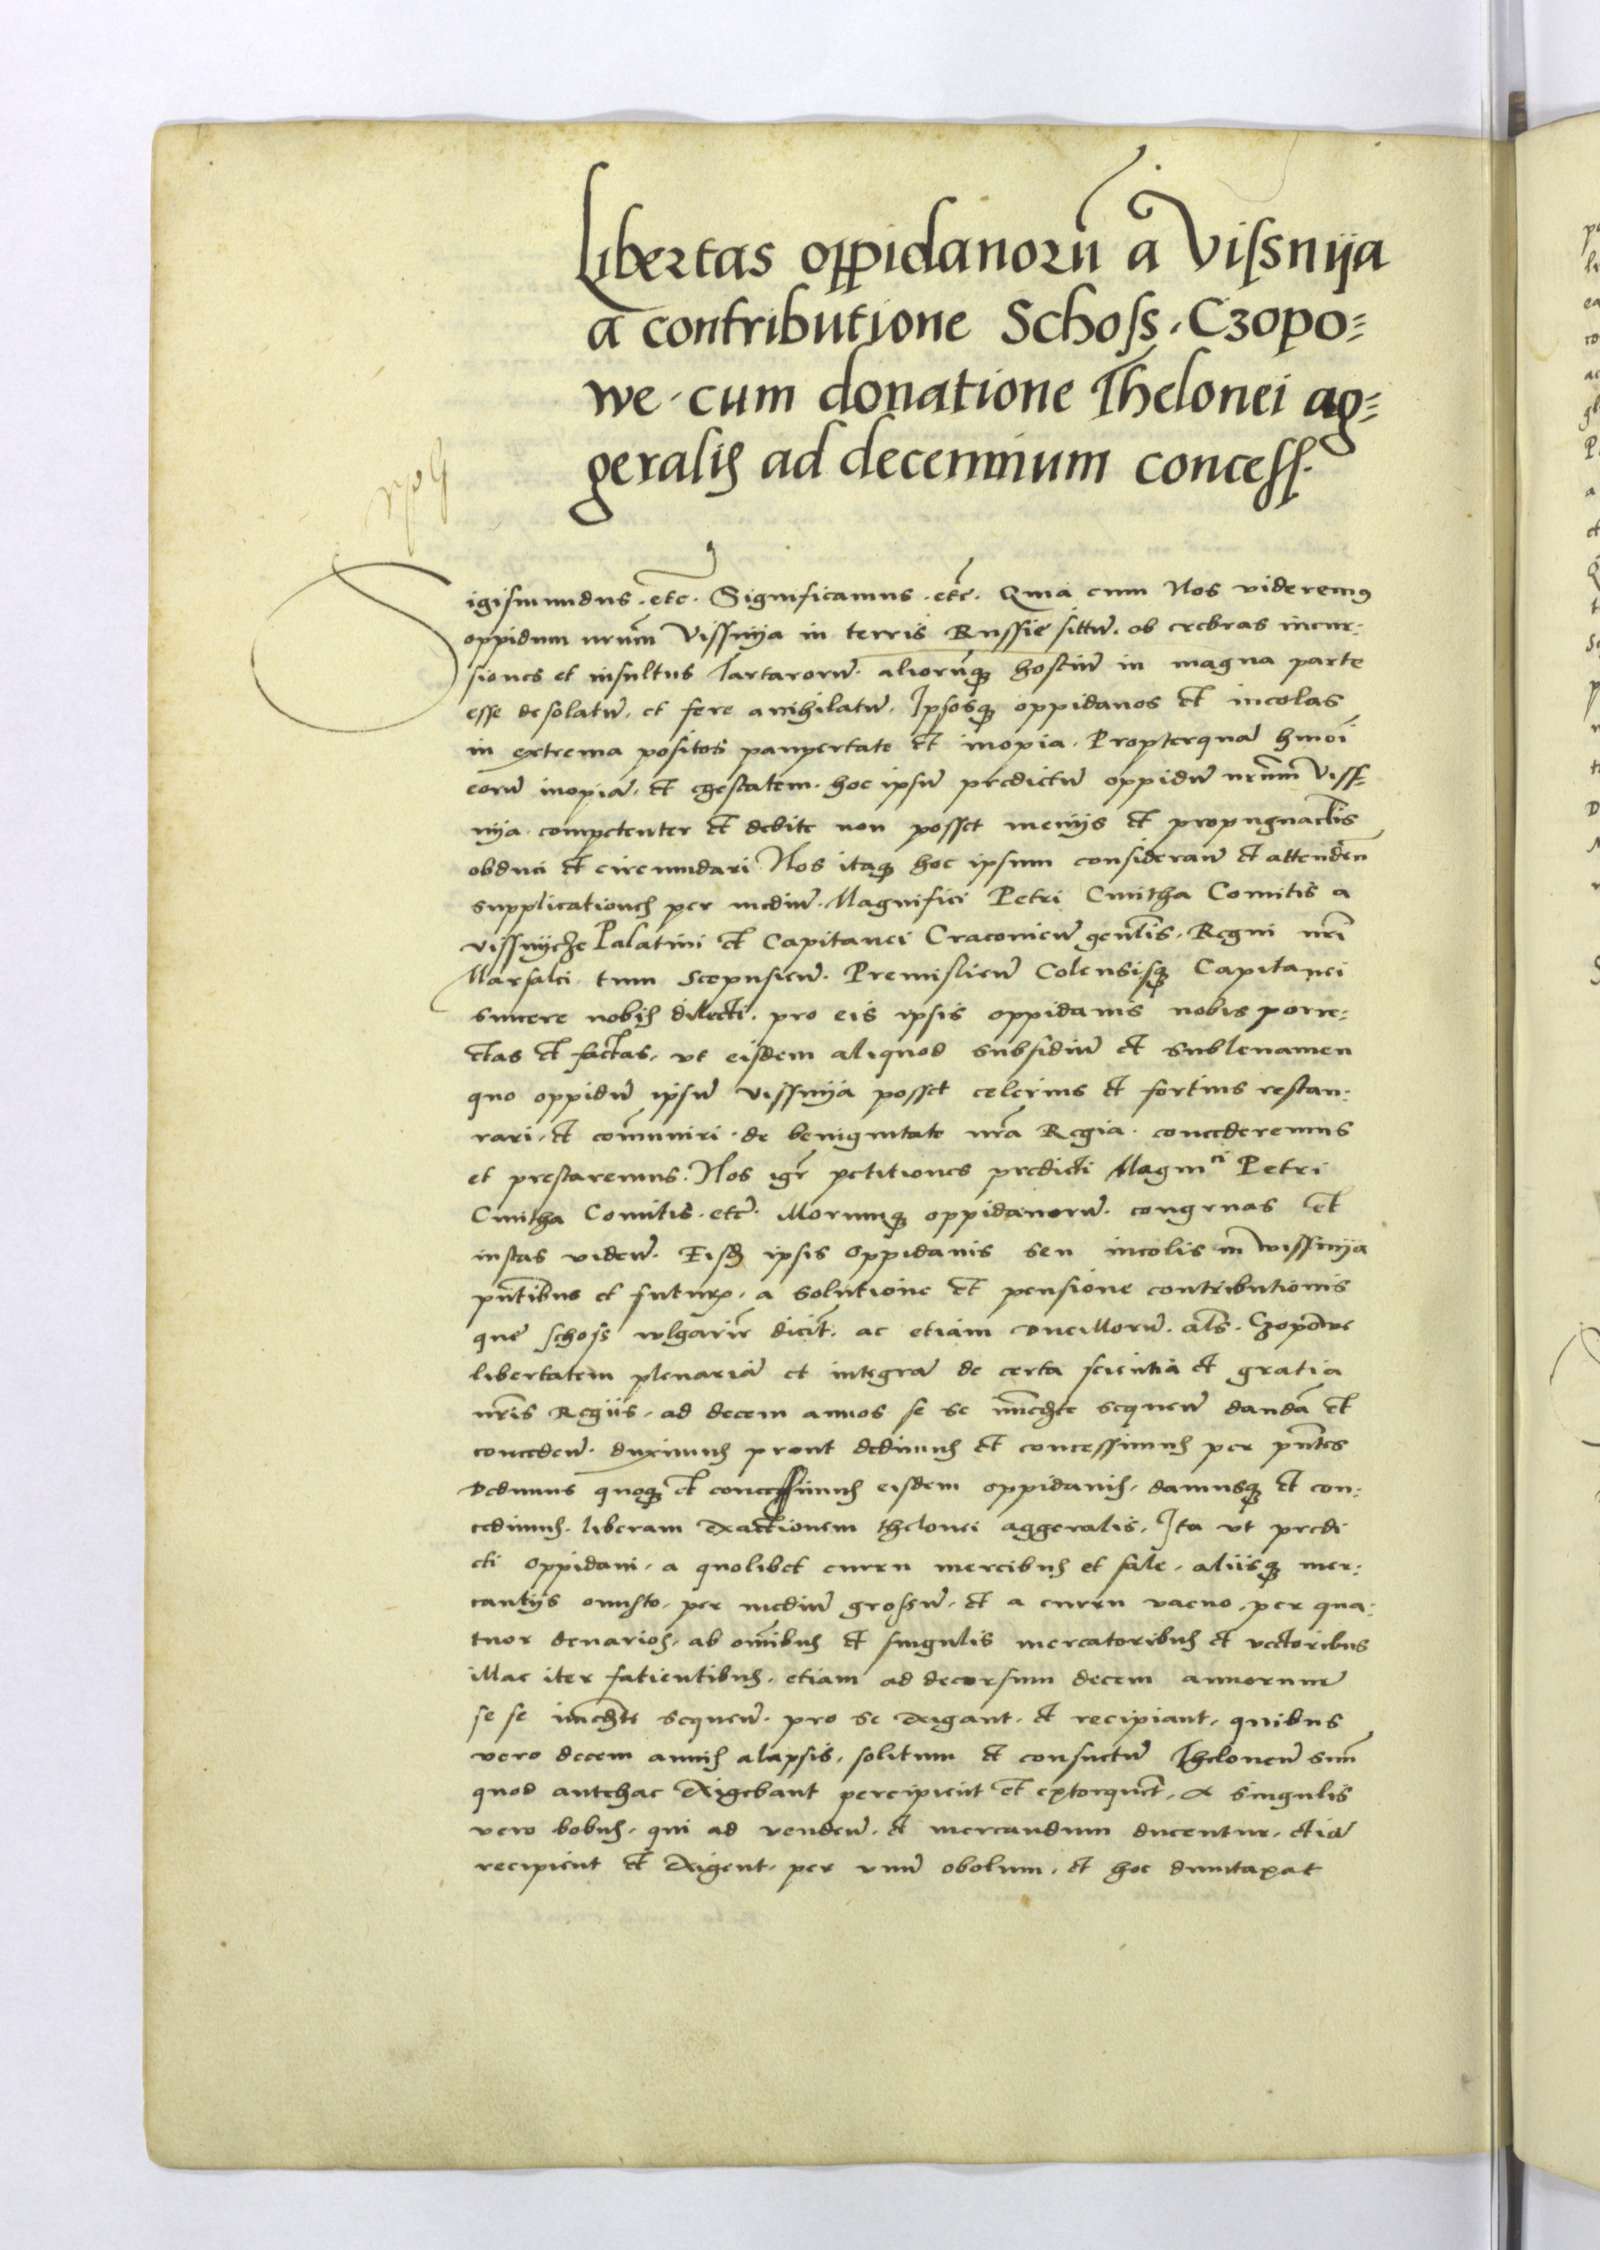 Libertas oppidanorū a Vissnija
a contributione Schoss. Czopo=
we. cum donatione Thelonei ag=
geralis ad decennium concess.
Sigismundus. etc. Significamus. etc. Quia cum Nos videremus
oppidum nr̄um Vissnija in terris Russie sitū. ob crebras incur-
siones et insultus Tartarorū. aliorūq; hostiū in magna parte
esse desolatū. et fere anihilatū. Ipsosq; oppidanos et incolas
in extrema positos paupertate et inopia. Propterquā hmōi
eorū inopiā. et egestatem. hoc ipsū predictū oppidū nr̄um Viss-
nija competenter et debite non posset menijs et propugnacl̄is
obduci et circumdari. Nos itaq; hoc ipsum consideran̄ et attenden̄
supplicationes per mediū. Magnifici Petri Cmitha Comitis a
vissnijcze Palatini et Capitanei Cracovien̄ gen̄lis. Regni nr̄i
Marsalci. tum Scepusien̄. Premislien̄ Colensisq; Capitanei
sincere nobis dilecti. pro eis ipsis oppidanis nobis porre-
ctas et factas. ut eisdem aliquod subsidiū et sublevamen
quo oppidū ipsū vissnija posset celerius et fortius restau-
rari. et com̄uniri. de benignitate nr̄a Regia. concederemus
et prestaremus. Nos igr̄ petitiones predicti Magnⁱᶜⁱ Petri
Cmitha Comitis. etc. illorumq; oppidanorū. congruas et
iustas viden̄. Eisd ipsis oppidanis seu incolis in vissnija
pn̄tibus et futur. a solutione et pensione contributionis
que schoss vlgarir̄ dicit̄. ac etiam ducillorū. al̄s. Czopowe
libertatem plenariā et integrā de certa scientia et gratia
nr̄is Regiis. ad decem annos se se im̄edte sequen̄ dandā et
conceden̄. duximus prout dedimus et concessimus per pn̄tes
Dedimus quoq; et concessimus eisdem oppidanis. damusq; et con-
cedimus. liberam exactionem thelonei aggeralis. Ita ut predi
cti oppidani. a quolibet curru mercibus et sale. aliisq; mer-
cantijs onusto. per mediū grossū. et a curru vacuo. per qua-
tuor denarios. ab om̄ibus et singulis mercatoribus et vectoribus
illac iter fatientibus. etiam ad decursum decem annorum
se se im̄edte sequen̄. pro se exigant. et recipiant. quibus
vero decem annis alapsis. solitum et consuetū Theloneū suū
quod antehac exigebant percipient et extorquēt. A singulis
vero bobus. qui ad venden̄. et mercandum ducentur. etiā
recipient et exigent. per unū obolum. et hoc dumtaxat